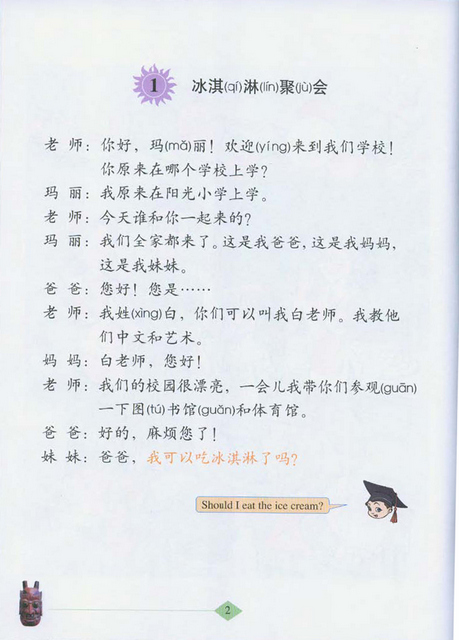 1 冰淇(qí)淋(lín)聚(jù)会
老 师：你好，玛(mǎ)丽！欢迎(yíng)来到我们学校！
你原来在哪个学校上学？
玛 丽：我原来在阳光小学上学。
老 师：今天谁和你一起来的？
玛 丽：我们全家都来了。这是我爸爸，这是我妈妈，
这是我妹妹。
爸 爸：您好！您是……
老 师：我姓(xìng)白，你们可以叫我白老师。我教他
们中文和艺术。
妈 妈：白老师，您好！
老 师：我们的校园很漂亮，一会儿我带你们参观(guān)
一下图(tú)书馆(guǎn)和体育馆。
爸 爸：好的，麻烦您了！
妹 妹：爸爸，我可以吃冰淇淋了吗？
Should I eat the ice cream?
2